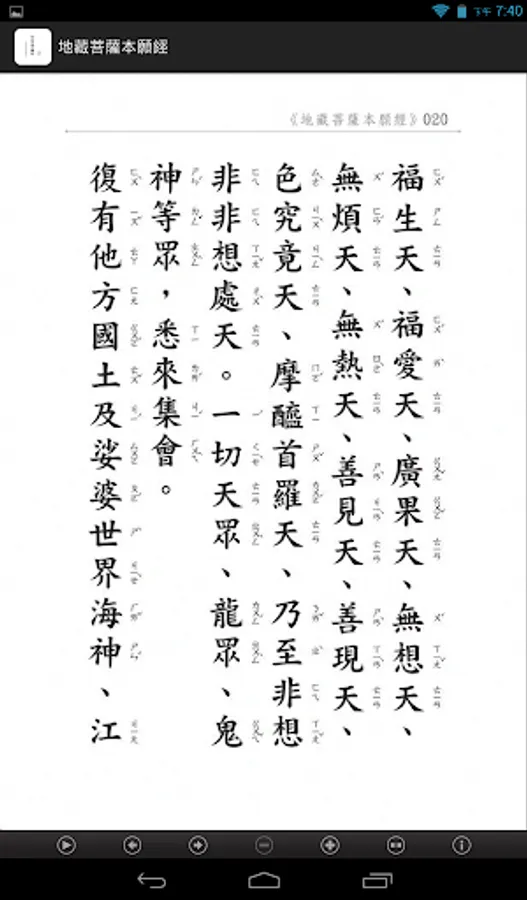 下午 7:40
地藏菩薩本願經
《地藏菩薩本願經》020
福生天、福愛天、廣果天、無想天、
無煩天、無熱天、善見天、善現天、
色究竟天、摩醯首羅天、乃至非想
非非想處天。一切天眾、龍眾、鬼
神等眾，悉來集會。
復有他方國土及娑婆世界海神、江